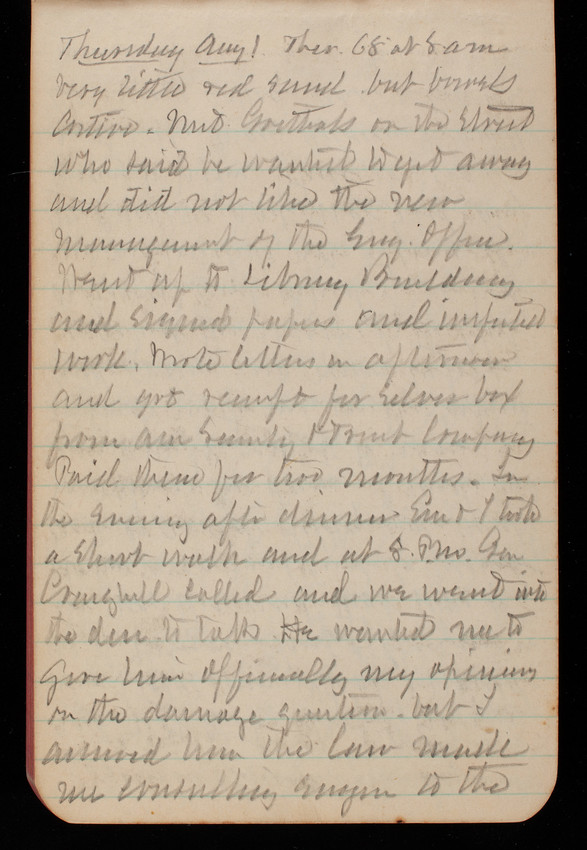 Thursday Aug 1. Ther. 68 at 8 am
very little red sand but bowels
costive. Met Goethals on the Street
who said he wanted to get away
and did not like the new
management of the Eng. Office.
Went up to Library Building
and signed papers and inspected
work. Wrote letters in afternoon
and got receipt for silver box
from Am Security & Trust Company
Paid them for two months. In
the evening after dinner Em & I took
a short walk and at 8. P.M. Gen
Craighill called and we went into
the den to talk He wanted me to
give him officially my opinion
on the damage question. but I
the law made
me consulting to the